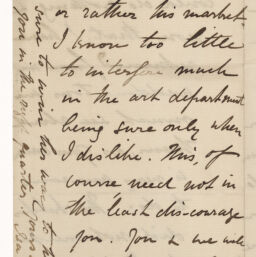 or rather his market.
I know too little
to interfere much
in the art department
being sure only when
I dislike. This, of
course need not in
the least discourage
you. You & we will
sure to win her way to th
you in the right quarter. Yours